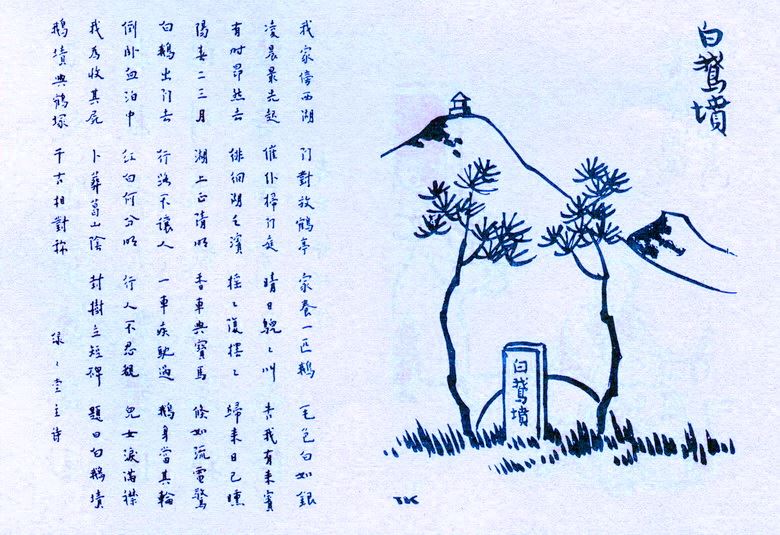 白鵞墳
白鵞墳
TK
我家傍西湖 门對放鶴亭 家養一匹鵝 毛色白如銀
凌晨最先起 催仆掃门庭 晴日鶃〻叫 告我有來賓
有时昂然去 徘徊湖之濱 搖〻復擺〻 歸來日已曛
陽春二三月 湖上正清明 香車與寶馬 倏如流電驚
白鵝出门去 行路不讓人 一車疾馳過 鵝身當其輪
倒卧血泊中 紅白何分明 行人不忍觀 兒女淚滿襟
我為收其屍 卜葬葛山陰 封樹立短碑 題曰白鵝墳
鵝墳與鶴塚 千古相對稱 緣〻堂主诗